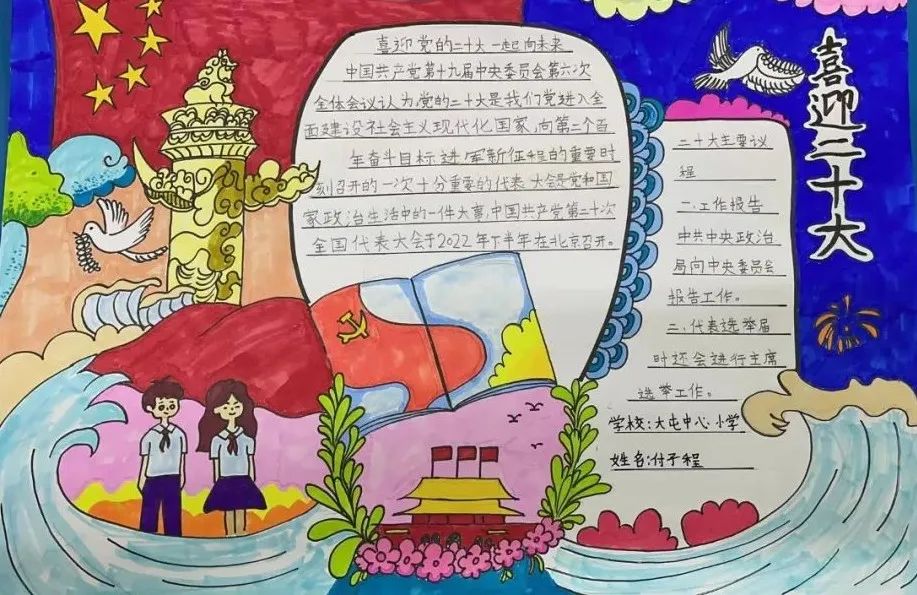 喜迎党的二十大 一起向未来
中国共产党第十九届中央委员会第六次
全体会议认为,党的二十大是我们党进入全
面建设社会主义现代化国家,向第二个百
年奋斗目标进军新征程的重要时
刻召开的一次十分重要的代表大会是党和国
家政治生活中的一件大事,中国共产党第二十次
全国代表大会于2022年下半年在北京召开。
喜迎二十大
二十大主要议
程
一.工作报告
中共中央政治
局向中央委员会
报告工作。
二、代表选举届
时还会进行主席
选举工作。
学校:大屯中心小学
姓名:付子程